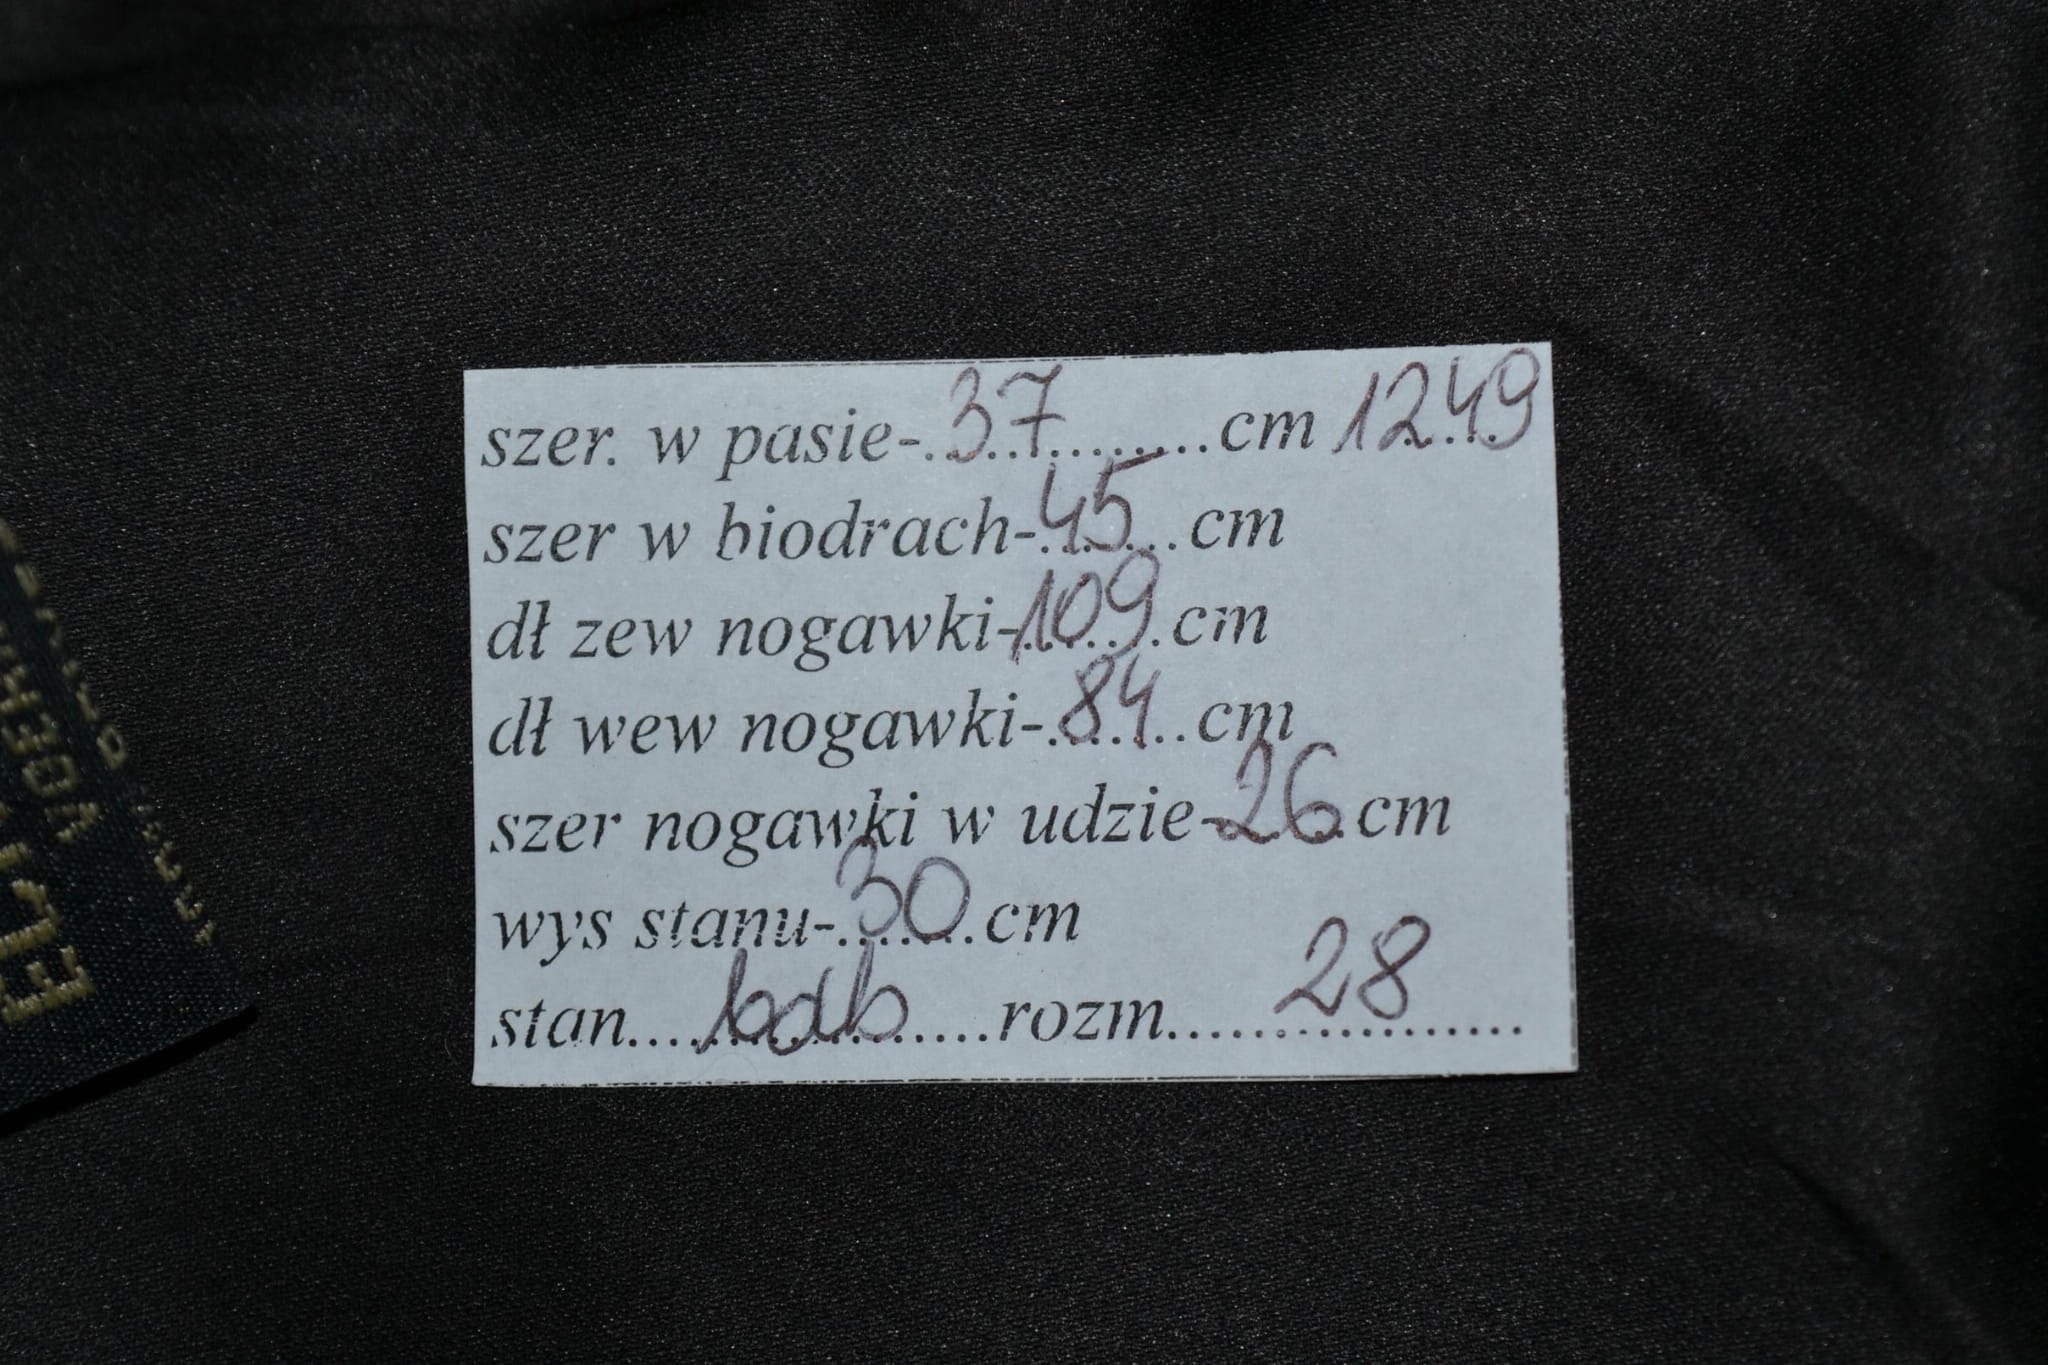 szer. w pasie-.37........cm 1249
szer w biodrach-.45...cm
dł zew nogawki-109.cm
dł wew nogawki-.84..cm
szer nogawki w udzie-26.cm
wys stanu-.30.cm
stan....bdb....rozm......28......